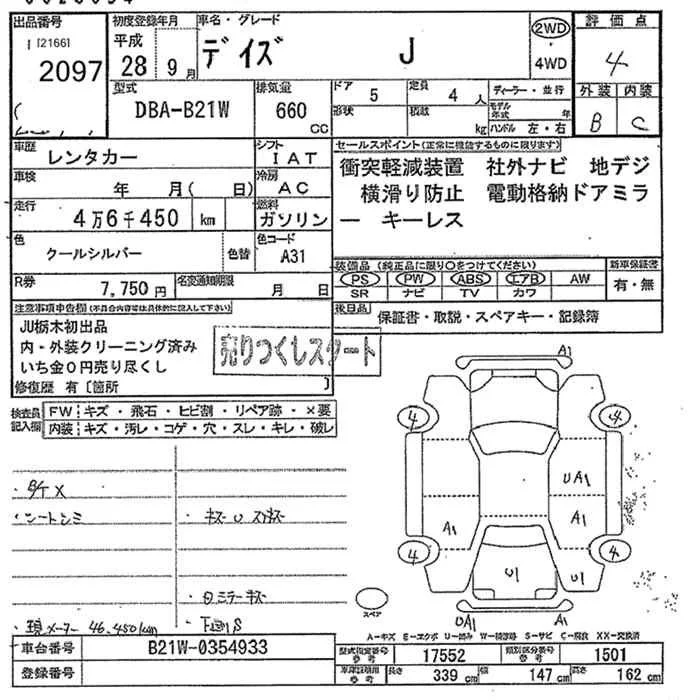 出品番号 初度登録年月 車名・グレード 評価点
121661
2097
平成 28 9月
デイズ J
2WD
4WD
4
外装 内装
B C
型式 DBA-B21W
排気量 660 cc
ドア 5 定員 4 人
形状 積載 kg
ディーラー・並行
モデル年式 年
ハンドル 左・右
車歴 レンタカー
シフト IAT
車検 年 月( 日)
冷房 AC
走行 4万6千450 km
燃料 ガソリン
色 クールシルバー 色替
色コード A31
R券 7,750円
名変通知期限 月 日
セールスポイント(正常に機能するものに限ります)
衝突軽減装置 社外ナビ 地デジ
横滑り防止 電動格納ドアミラ
ー キーレス
装備品(純正品に限り○をつけてください)
PS PW ABS エアB AW
SR ナビ TV カワ
新車保証書
有・無
後日品 保証書・取説・スペアキー・記録簿
注意事項申告欄(不具合内容等は具体的に記入して下さい)
JU栃木初出品
内・外装クリーニング済み
いち金0円売り尽くし
修復歴 有〔箇所 〕
売りつくしスタート
検査員記入欄
FW キズ・飛石・ヒビ割・リペア跡・×要
内装 キズ・汚レ・コゲ・穴・スレ・キレ・破レ
・シートシミ
・キズU
・ミラーキズ
・現メーター 46,450km
・下回りS
A1
4 4
UA1
A1 A1
4 4
U1 U1
UA1 A1
スペア
A-キズ E-エクボ U-凹み W-補修跡 S-サビ C-腐食 XX-交換済
車台番号 B21W-0354933
登録番号
型式指定番号 参考 17552
類別区分番号 参考 1501
車検証数値 参考 長さ 339 cm 幅 147 cm 高さ 162 cm